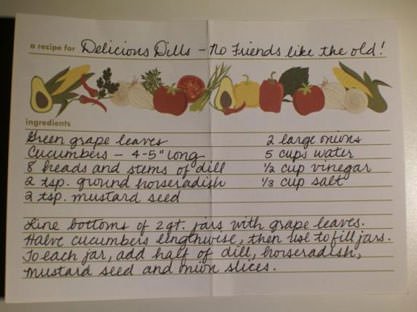 a recipe for Delicious Dills - No Friends like the old!
ingredients
Green grape leaves 2 large onions
Cucumbers - 4-5" long 5 cups water
8 heads and stems of dill ½ cup vinegar
2 tsp. ground horseradish ⅓ cup salt
2 tsp. mustard seed
Line bottoms of 2 qt. jars with grape leaves.
Halve cucumbers lengthwise, then use to fill jars.
To each jar, add half of dill, horseradish,
mustard seed and onion slices.